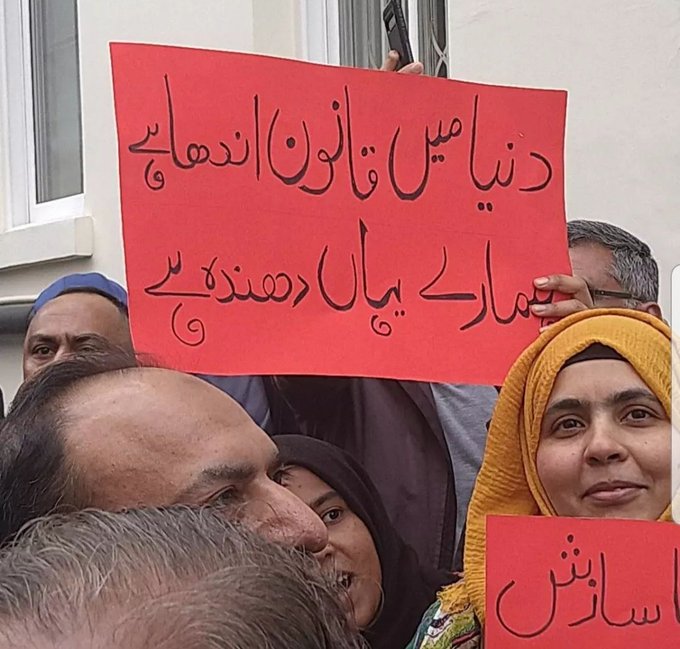 دنیا میں قانون اندھا ہے
ہمارے یہاں دھندہ ہے
سازش